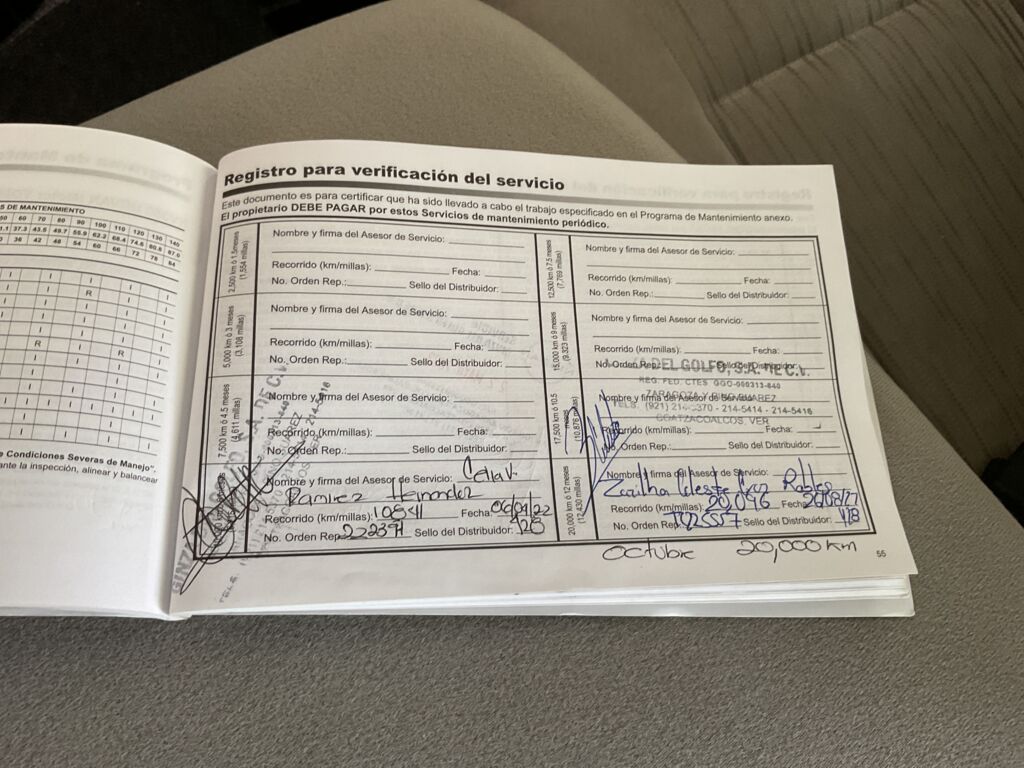 Registro para verificación del servicio
Este documento es para certificar que ha sido llevado a cabo el trabajo especificado en el Programa de Mantenimiento anexo.
El propietario DEBE PAGAR por estos Servicios de mantenimiento periódico.
S DE MANTENIMIENTO
60 70 80 90 100 110 120 130 140
37.3 43.5 49.7 55.9 62.2 68.4 74.6 80.8 87.0
36 42 48 54 60 66 72 78 84
R
R
R
Condiciones Severas de Manejo",
ante la inspección, alinear y balancear
2,500 km ó 1.5meses
(1,554 millas)
Nombre y firma del Asesor de Servicio:
Recorrido (km/millas): Fecha:
No. Orden Rep.: Sello del Distribuidor:
5,000 km ó 3 meses
(3,108 millas)
Nombre y firma del Asesor de Servicio:
Recorrido (km/millas): Fecha:
No. Orden Rep.: Sello del Distribuidor:
7,500 km ó 4.5 meses
(4,611 millas)
Nombre y firma del Asesor de Servicio:
Recorrido (km/millas): Fecha:
No. Orden Rep.: Sello del Distribuidor:
Nombre y firma del Asesor de Servicio:
Ramirez Hernandez
Recorrido (km/millas): 10841 Fecha:
No. Orden Rep. Sello del Distribuidor:
12,500 km ó 7.5 meses
(7,769 millas)
Nombre y firma del Asesor de Servicio:
Recorrido (km/millas): Fecha:
No. Orden Rep.: Sello del Distribuidor:
15,000 km ó 9 meses
(9,323 millas)
Nombre y firma del Asesor de Servicio:
Recorrido (km/millas): Fecha:
No. Orden Rep.: Sello del Distribuidor:
DEL GOLFO, S.A. DE C.V.
REG. FED. CTES
TELS. (921) 214-5414 - 214-5416
COATZACOALCOS, VER
17,500 km ó 10.5 meses
(10,876 millas)
Nombre y firma del Asesor de Servicio:
Recorrido (km/millas): Fecha:
No. Orden Rep.: Sello del Distribuidor:
20,000 km ó 12 meses
(12,430 millas)
Nombre y firma del Asesor de Servicio:
Cruz Robles
Recorrido (km/millas): 20,096 Fecha:
No. Orden Rep. Sello del Distribuidor:
Octubre 20,000 km
55